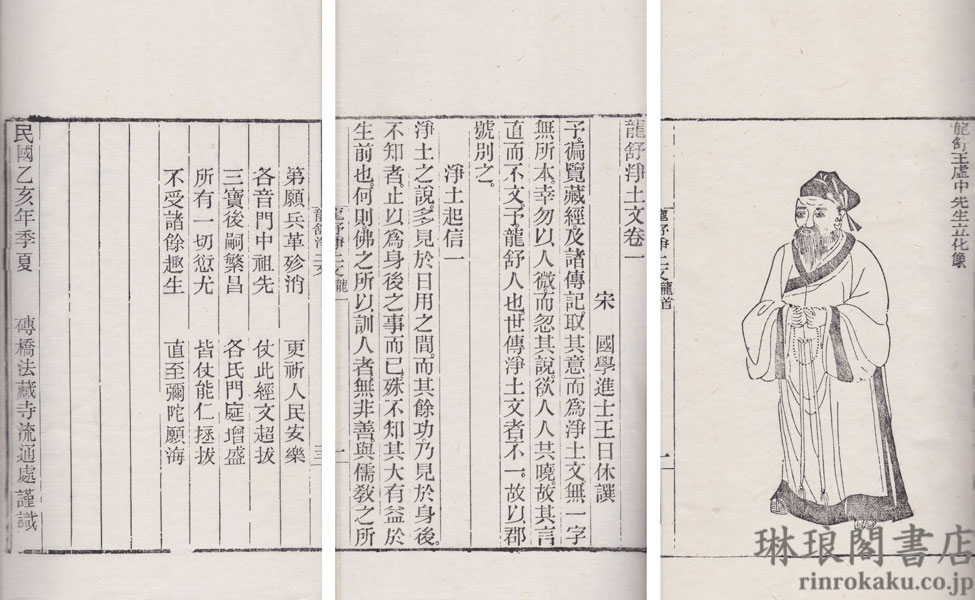 龍舒王虛中先生立化像
龍舒淨土文卷一
宋 國學進士王日休譔
予徧覽藏經及諸傳記取其意而爲淨土文無一字
無所本幸勿以人微而忽其說欲人人共曉故其言
直而不文予龍舒人也世傳淨土文者不一故以郡
號別之
淨土起信一
淨土之說多見於日用之間而其餘功乃見於身後
不知者止以爲身後之事而已殊不知其大有益於
生前也何則佛之所以訓人者無非善與儒敎之所
第願兵革殄消 更祈人民安樂
各音門中祖先 仗此經文超拔
三寶後嗣繁昌 各氏門庭增盛
所有一切愆尤 皆仗能仁拯拔
不受諸餘趣生 直至彌陀願海
民國乙亥年季夏 磚橋法藏寺流通處謹識
琳琅閣書店
rinrokaku.co.jp